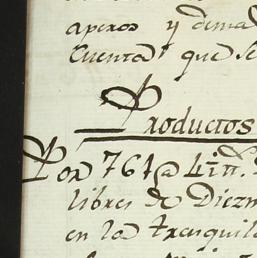 aperos y dema
Cuenta que se
Productos
Por 761@ 4 in.
libres de Diezm
en la tresquila